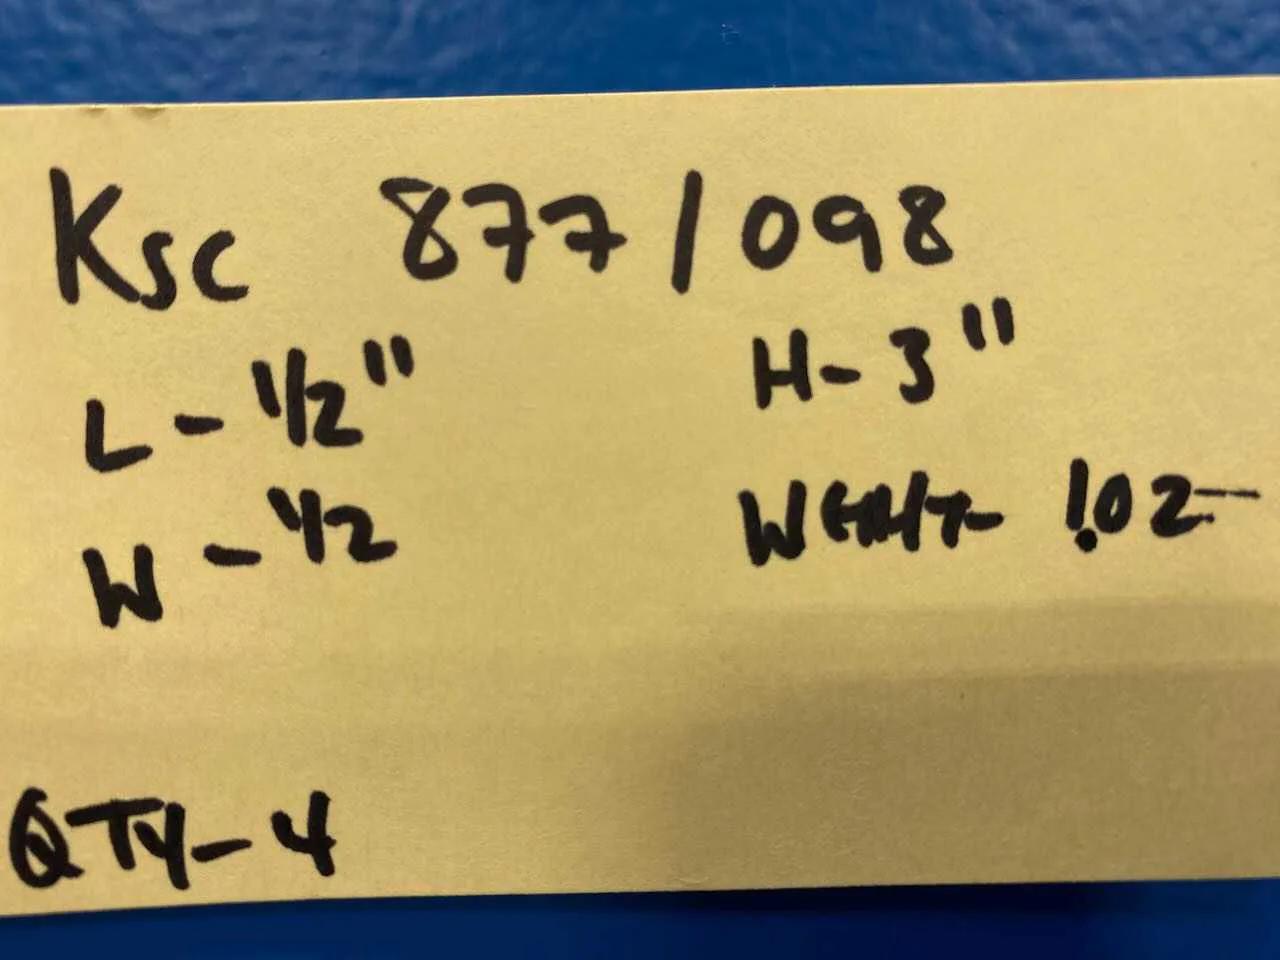 Ksc 877/098
L - 1/2" H - 3"
W - 1/2 1.02
QTY - 4